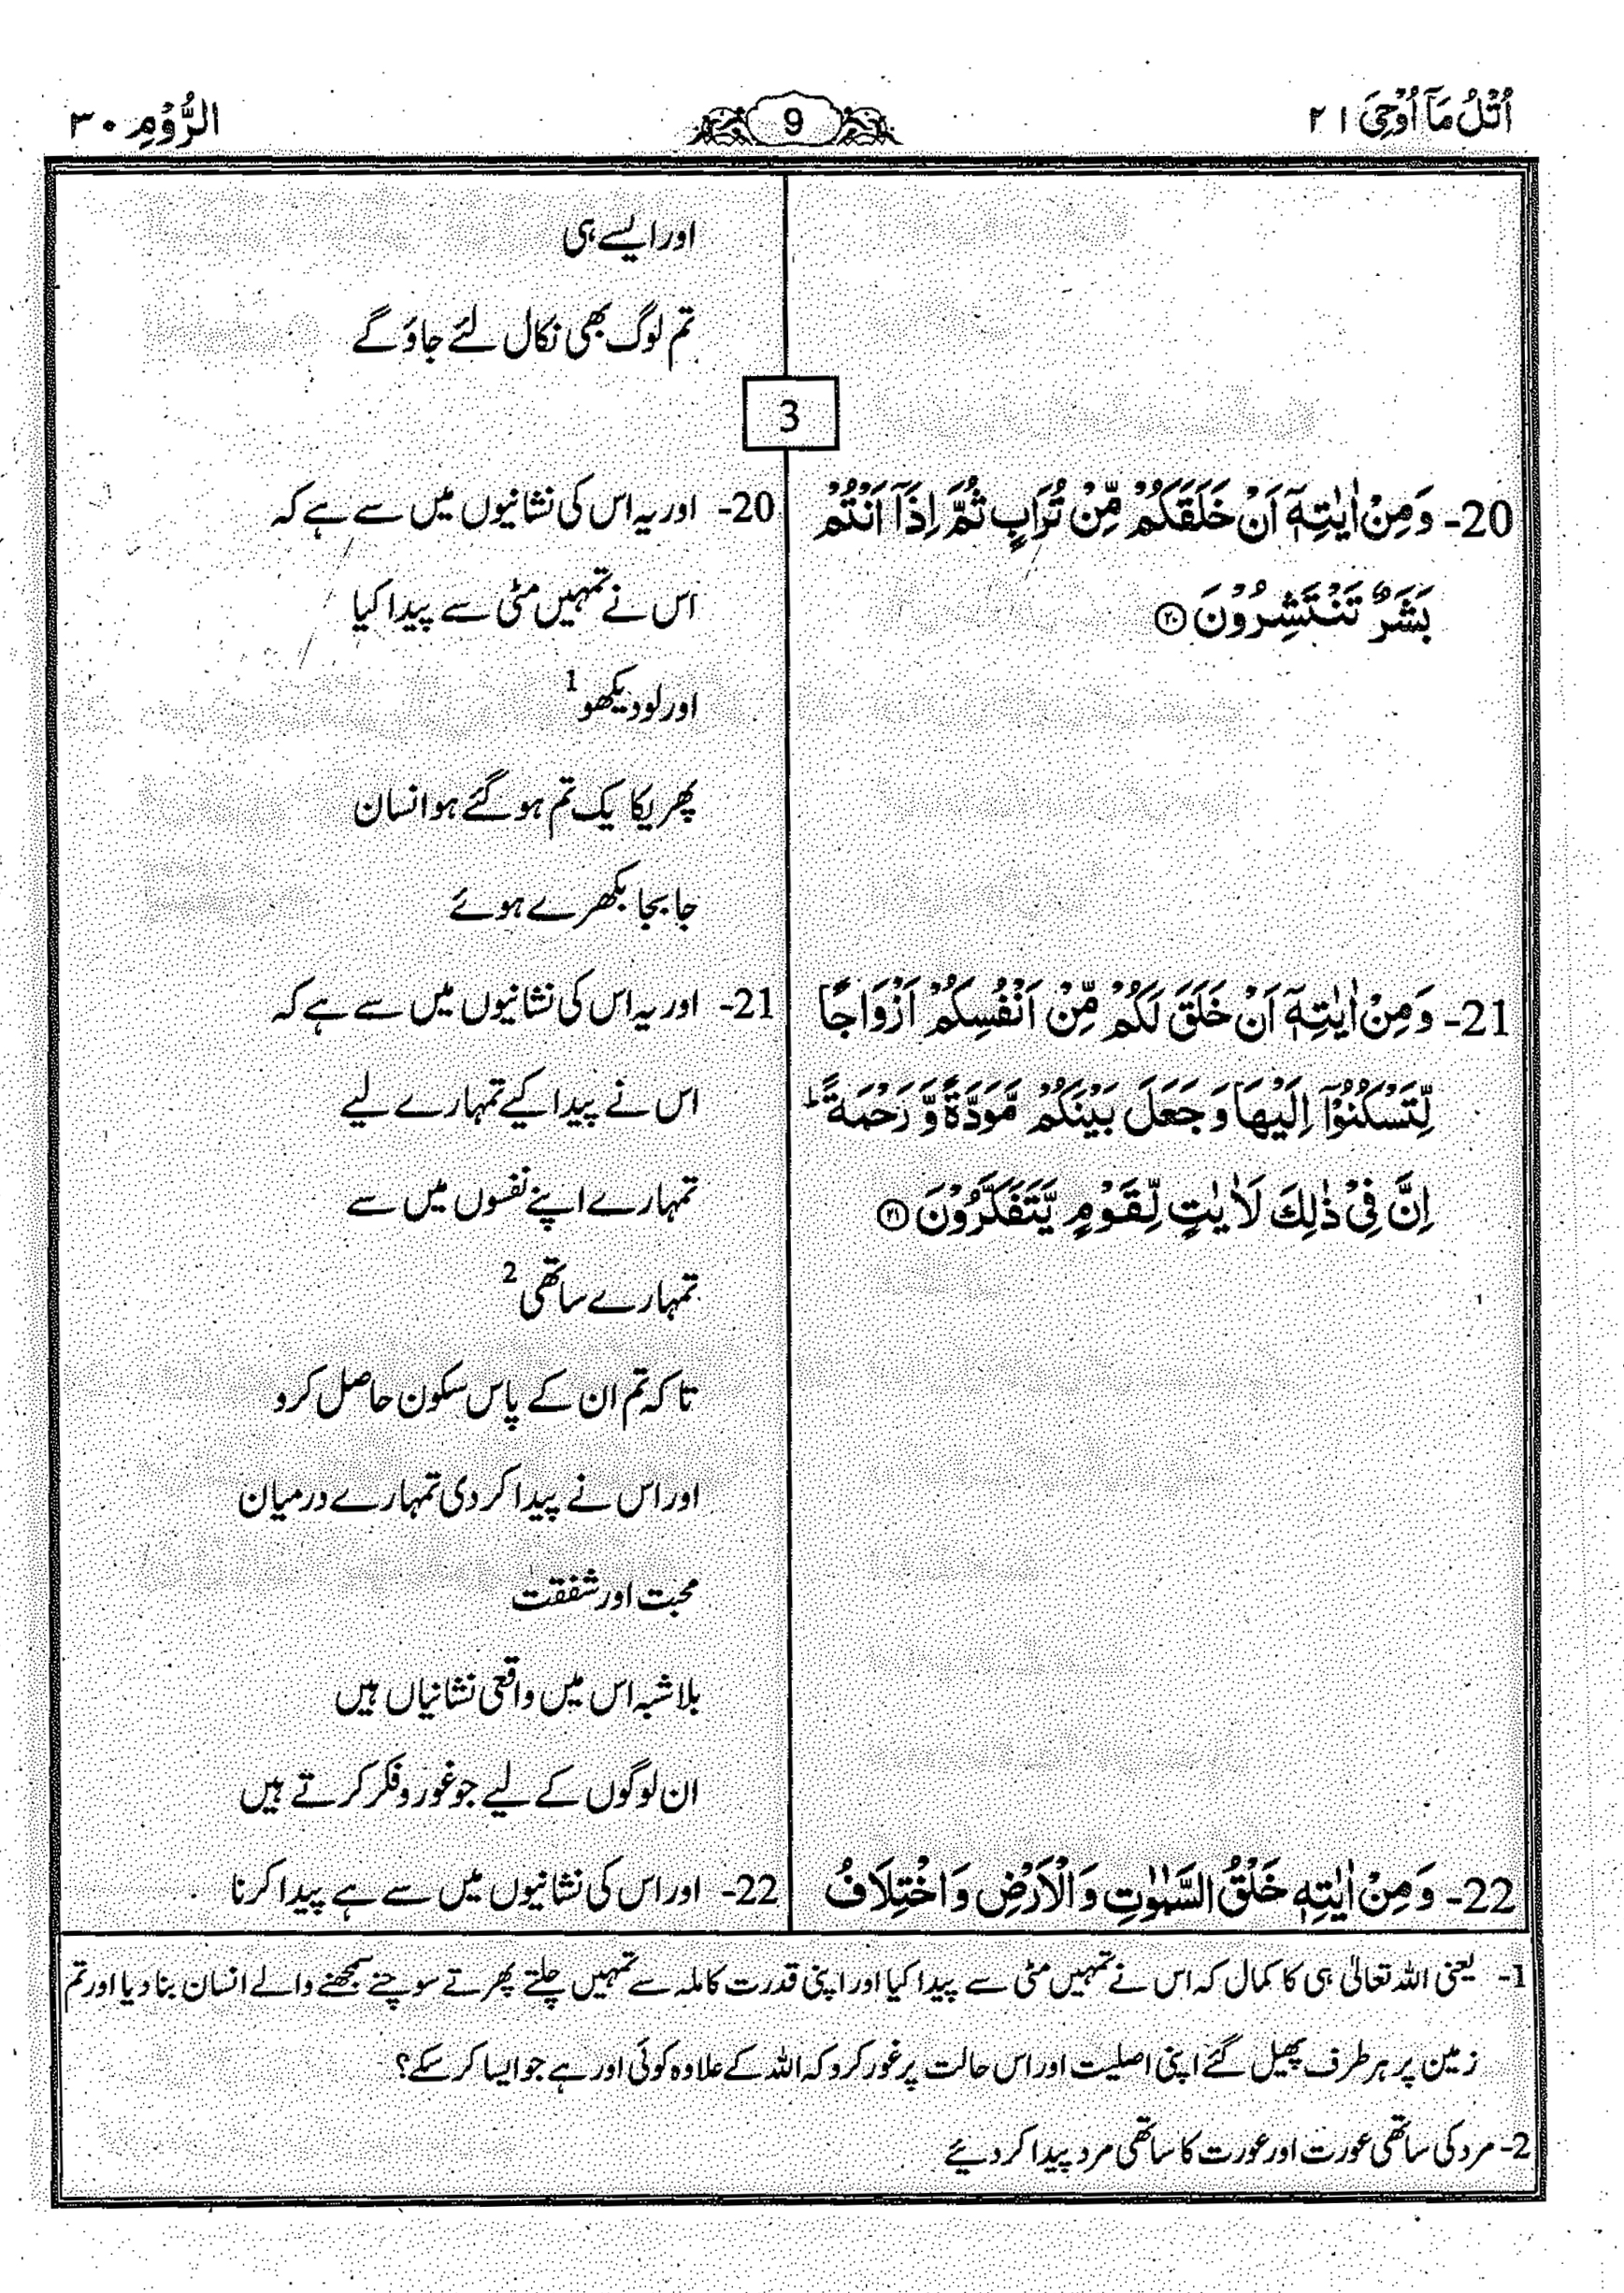 اُتْلُ مَآ اُوْحِىَ ٢١
9
الرُّوْمِ ٣٠
اور ایسے ہی
تم لوگ بھی نکال لئے جاؤ گے
3
20- وَمِنْ اٰيٰتِهٖٓ اَنْ خَلَقَكُمْ مِّنْ تُرَابٍ ثُمَّ اِذَآ اَنْتُمْ
بَشَرٌ تَنْتَشِرُوْنَ ﴿٢٠﴾
20- اور یہ اس کی نشانیوں میں سے ہے کہ
اس نے تمہیں مٹی سے پیدا کیا
اور لو دیکھو 1
پھر یکا یک تم ہو گئے ہو انسان
جا بجا بکھرے ہوئے
21- وَمِنْ اٰيٰتِهٖٓ اَنْ خَلَقَ لَكُمْ مِّنْ اَنْفُسِكُمْ اَزْوَاجًا
لِّتَسْكُنُوْٓا اِلَيْهَا وَجَعَلَ بَيْنَكُمْ مَّوَدَّةً وَّ رَحْمَةً ؕ
اِنَّ فِىْ ذٰلِكَ لَاٰيٰتٍ لِّقَوْمٍ يَّتَفَكَّرُوْنَ ﴿٢١﴾
21- اور یہ اس کی نشانیوں میں سے ہے کہ
اس نے پیدا کیے تمہارے لیے
تمہارے اپنے نفسوں میں سے
تمہارے ساتھی 2
تا کہ تم ان کے پاس سکون حاصل کرو
اور اس نے پیدا کر دی تمہارے درمیان
محبت اور شفقت
بلا شبہ اس میں واقعی نشانیاں ہیں
ان لوگوں کے لیے جو غور و فکر کرتے ہیں
22- وَمِنْ اٰيٰتِهٖ خَلْقُ السَّمٰوٰتِ وَالْاَرْضِ وَاخْتِلَافُ
22- اور اس کی نشانیوں میں سے ہے پیدا کرنا
1- یعنی اللہ تعالیٰ ہی کا کمال کہ اس نے تمہیں مٹی سے پیدا کیا اور اپنی قدرت کاملہ سے تمہیں چلتے پھرتے سوچتے سمجھنے والے انسان بنا دیا اور تم
زمین پر ہر طرف پھیل گئے اپنی اصلیت اور اس حالت پر غور کرو کہ اللہ کے علاوہ کوئی اور ہے جو ایسا کر سکے؟
2- مرد کی ساتھی عورت اور عورت کا ساتھی مرد پیدا کر دیئے